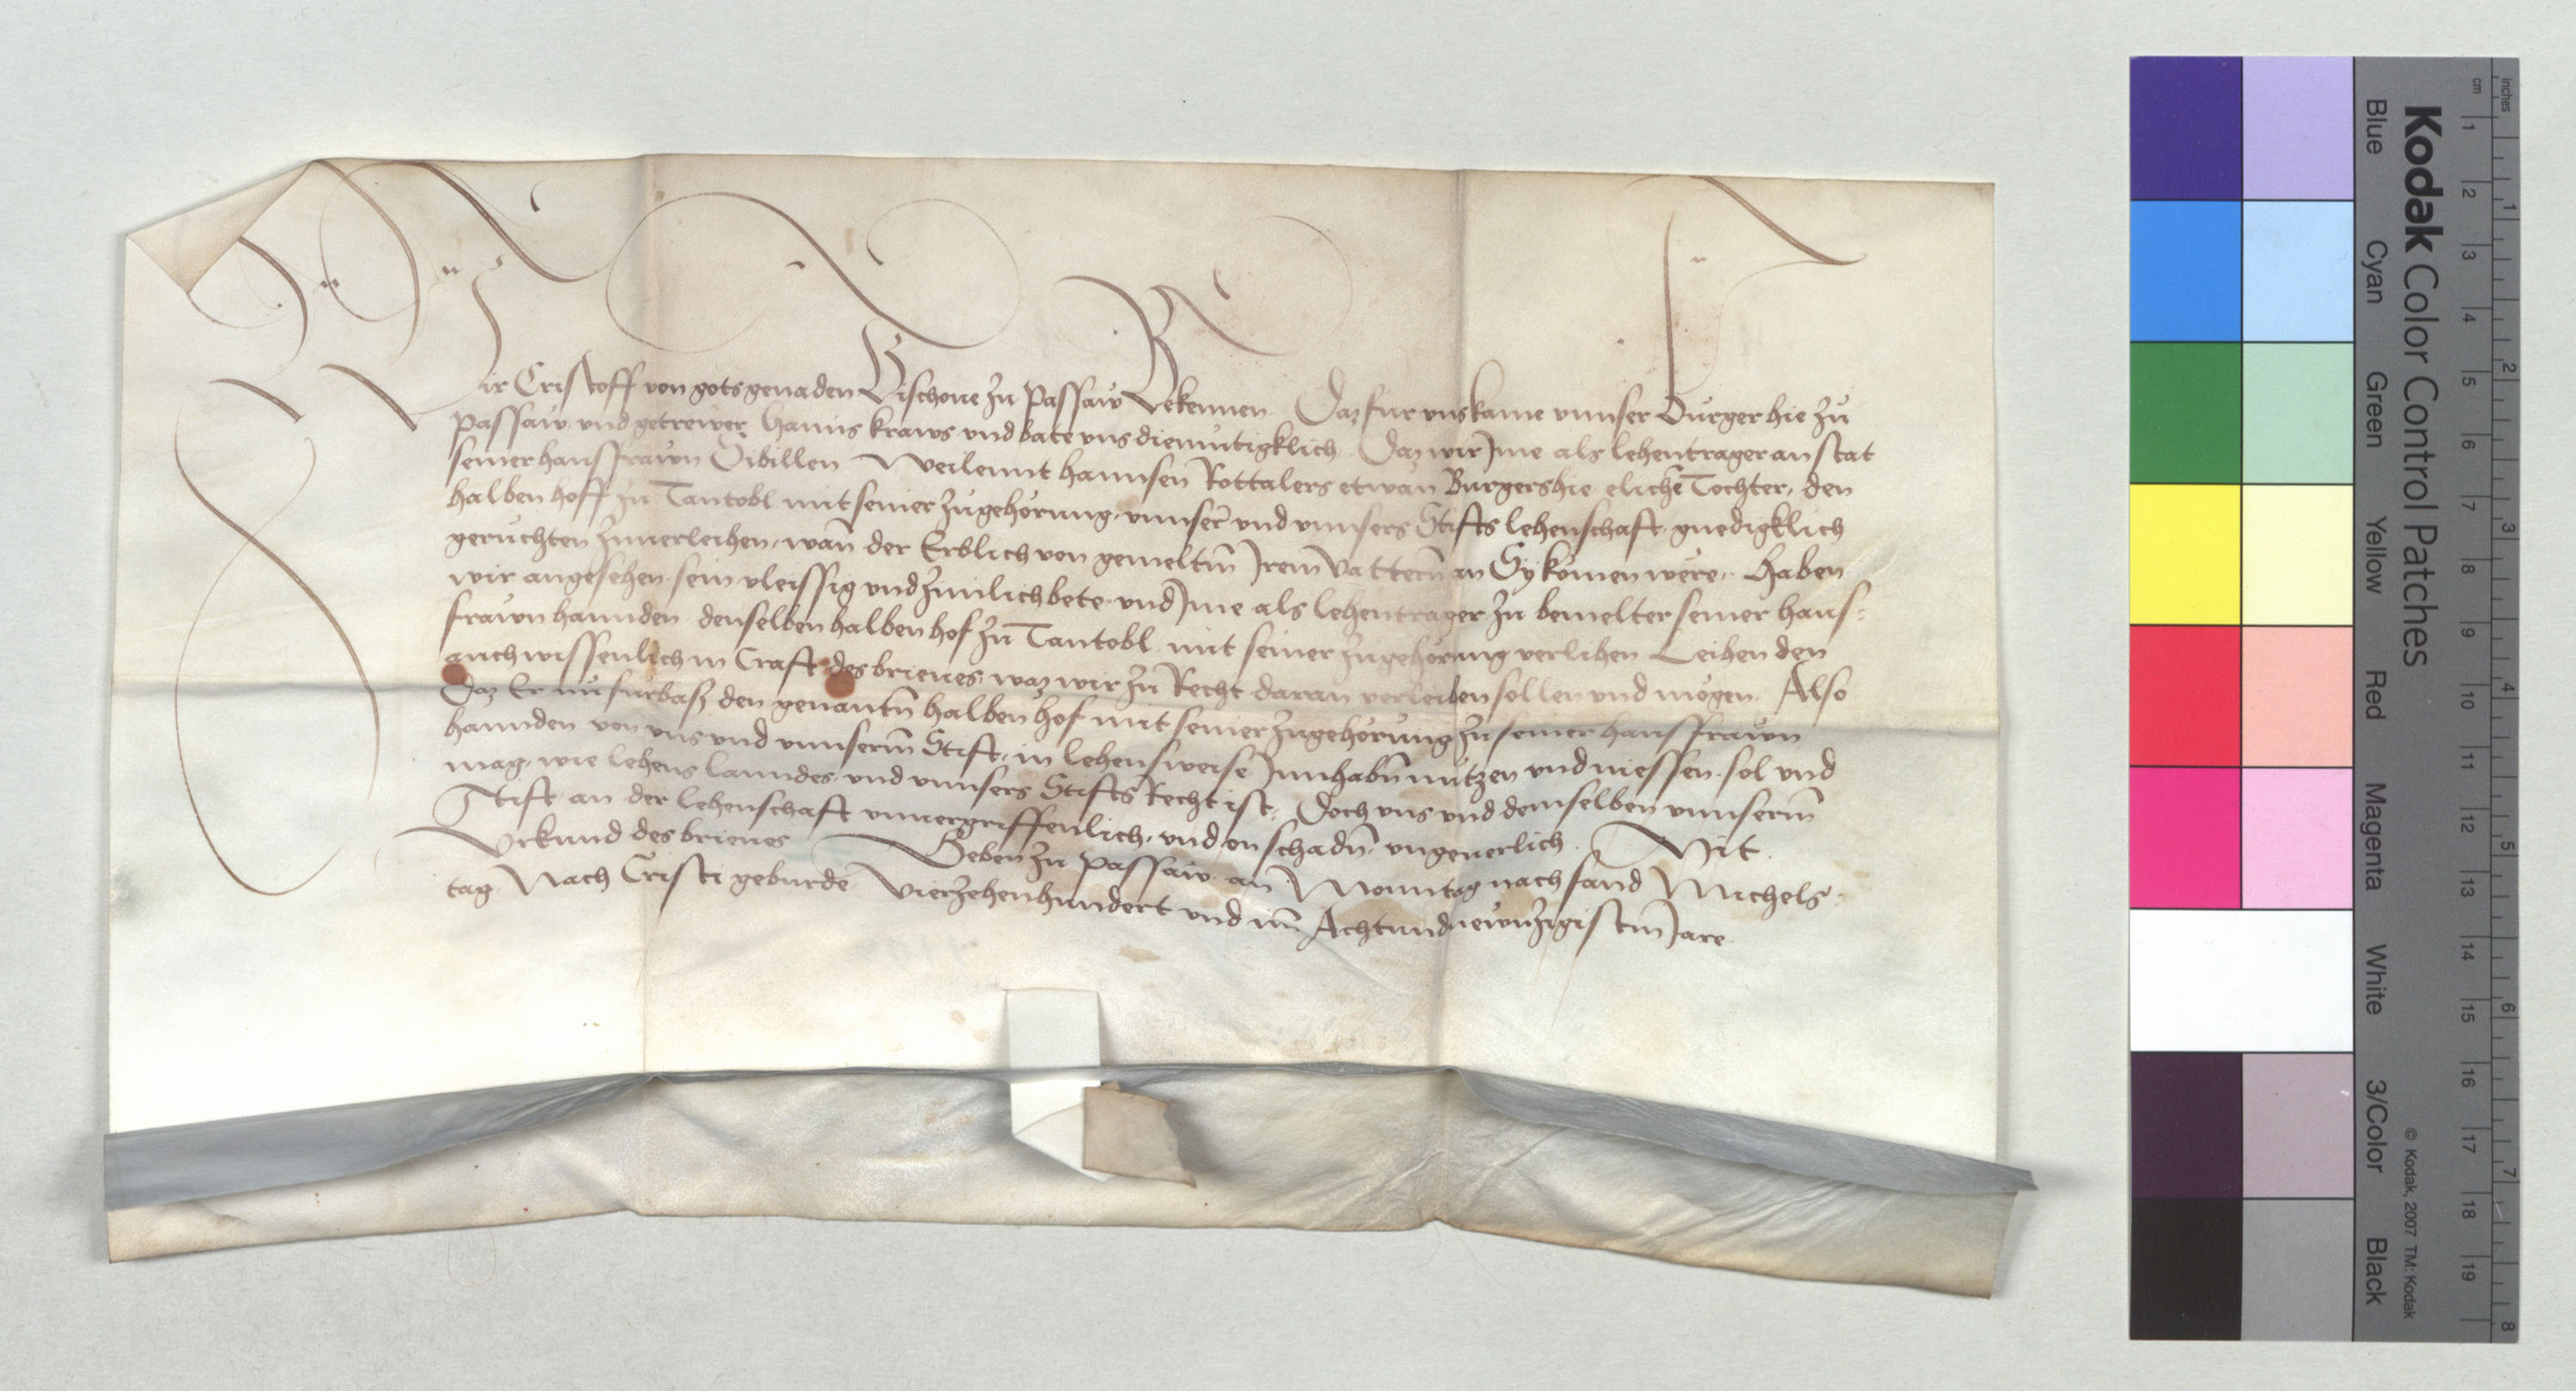 Wir Cristoff von gots genaden Bischoue zu Passaw Bekennen Daz fur vns kame vnnser Burger hie zu
Passaw vnd getrewer Hanns Kraws vnd bate vns diemutigklich Daz wir Ime als lehentrager an stat
seiner hausfrawn Sibillen Weilennt hannsen Rottalers etwan Burgers hie eliche Tochter, den
halben hoff zu Tantobl mit seiner zugehorung, vnnser vnd vnnsers Stifts lehenschaft gnedigklich
geruchten zuuerleihen, wan der Erblich von gemeltm Irem Vattern an Sy komen were, Haben
wir angesehen sein vleissig vnd zimlich bete vnd Ime als lehentrager zu bemelter seiner haus=
frawn hannden denselben halben hof zu Tantobl mit seiner zugehorung verlihen Leihen den
auch wissenlich in Craft des brieues, waz wir zu Recht daran verleihen sollen vnd mogen. Also
Daz Er nu furbaß den genantn halben hof mit seiner zugehorung zu seiner hausfrawn
hannden von vns vnd vnnserm Stift, in lehensweise Innhabn nutzen vnd niessen sol vnd
mag, wie lehens lanndes vnd vnnsers Stifts Recht ist, Doch vns vnd demselben vnnserm
Stift an der lehenschaft vnuergriffenlich, vnd on schadn, vngeuerlich. Mit
Vrkund des brieues Geben zu Passaw an Monntag nach sand Michels
tag Nach Cristi geburde Vierzehenhundert vnd im Achtundnewnzigistm Jare
Kodak Color Control Patches
Blue Cyan Green Yellow Red Magenta White 3/Color Black
© Kodak, 2007 TM: Kodak
inches 1 2 3 4 5 6 7 8
cm 1 2 3 4 5 6 7 8 9 10 11 12 13 14 15 16 17 18 19